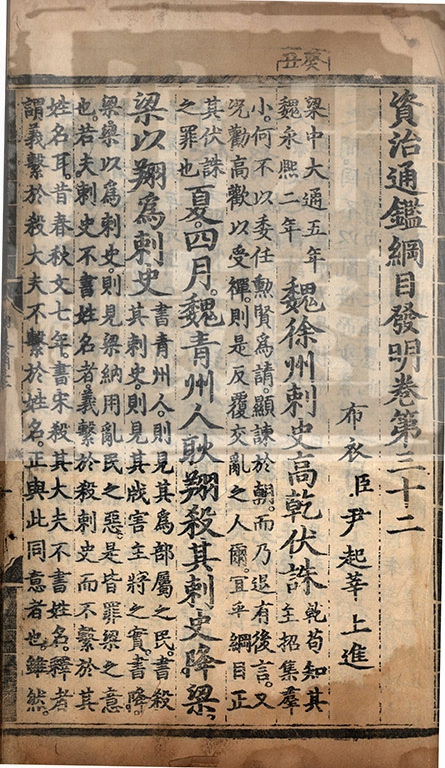 癸丑
資治通鑑綱目發明卷第三十二
布衣臣尹起莘上進
梁中大通五年
魏永熙二年
魏徐州刺史高乾伏誅
乾苟知其
主招集羣
小。何不以委任勲賢爲請。顯諫於朝。而乃退有後言。又
況勸高歡以受禪。則是反覆交亂之人爾。宜乎綱目正
其伏誅
之罪也
夏。四月。魏青州人耿翔殺其刺史降梁。
梁以翔爲刺史
書青州人。則見其爲部屬之民。書殺
其刺史。則見其戕害主將之實。書降。
梁。梁以爲刺史。則見梁納用亂民之惡。是皆罪梁之意
也。若夫刺史不書姓名者義繫於殺刺史而不繫於其
姓名耳。昔春秋文七年。書宋殺其大夫不書姓名。釋者
謂義繫於殺大夫不繫於姓名。正與此同意者也。雖然。